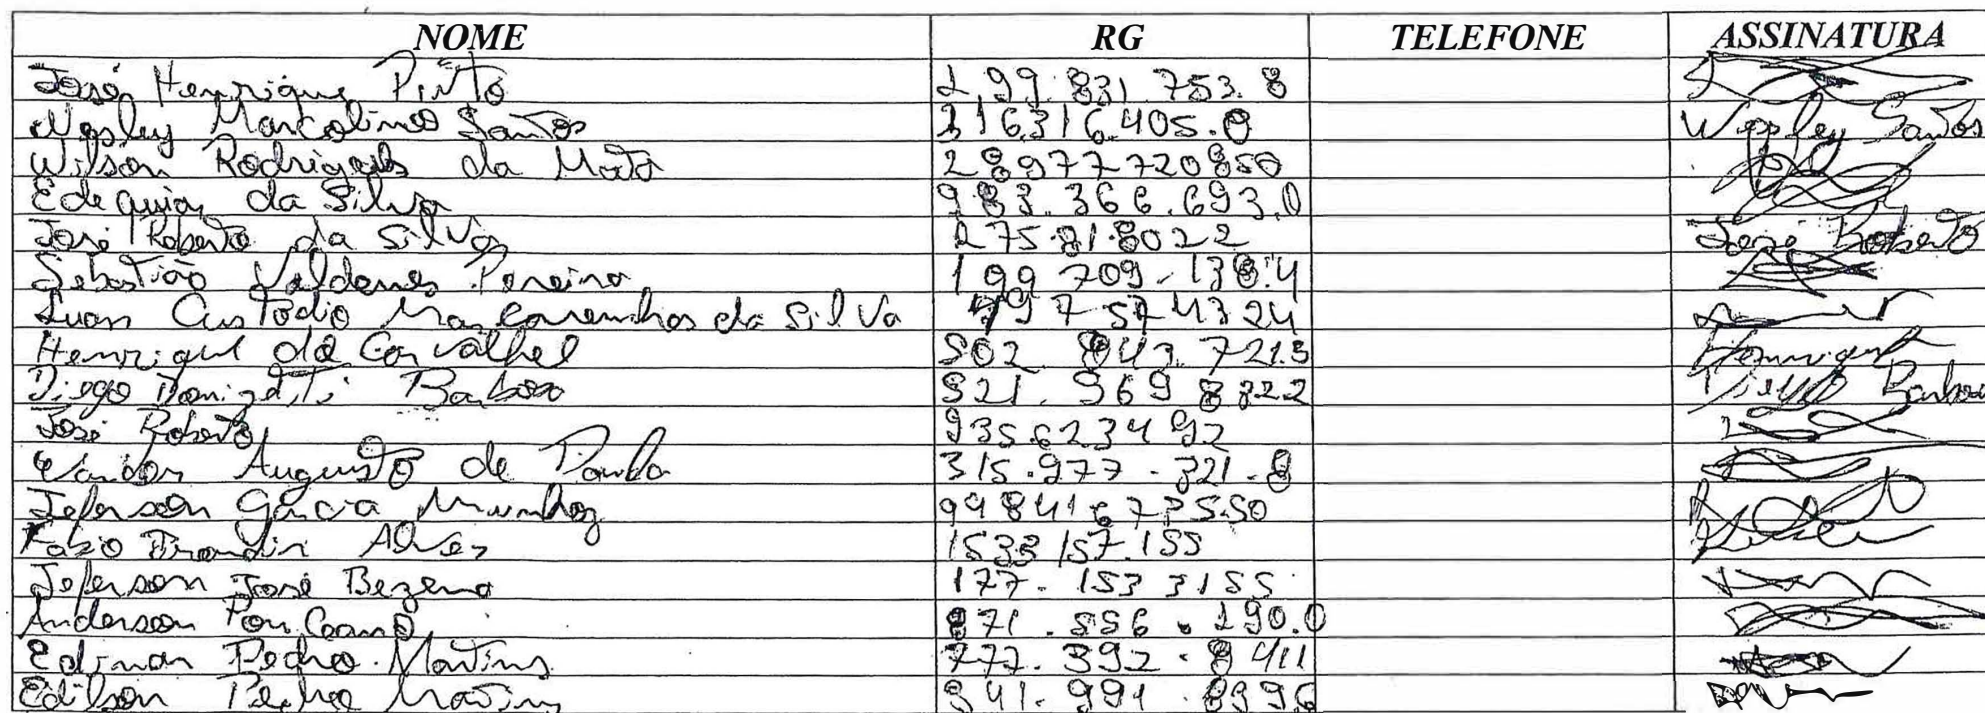 NOME RG TELEFONE ASSINATURA
José Henrique Pinto 199.831.753.8
Wesley Marcolino Santos 316316.405.0 Wesley Santos
Wilson Rodrigues da Mata 28977720850
Edequias da Silva 983.366.693.0
José Roberto da Silva 275.81.8022 José Roberto
Sebastião Valdenes Pereira 199 709.138.4
Luan Custodio Mascarenhas da Silva 797574324
Henrique de Carvalhel 502 843 721.3 Henrique
Diego Donizeti Barboza 521.969 8322 Diego Barboza
José Roberto 9356234 92
Vander Augusto de Paula 315.977.321.8
Jeferson Garcia Munhoz 99841673550
Fabio Alves 1533157.155
Jeferson José Bezerra 177.153 3155
Anderson 871.556.190.0
Edimar Pedro Martins 777.392.8411
Edilson Pedro Martins 941.991.8996